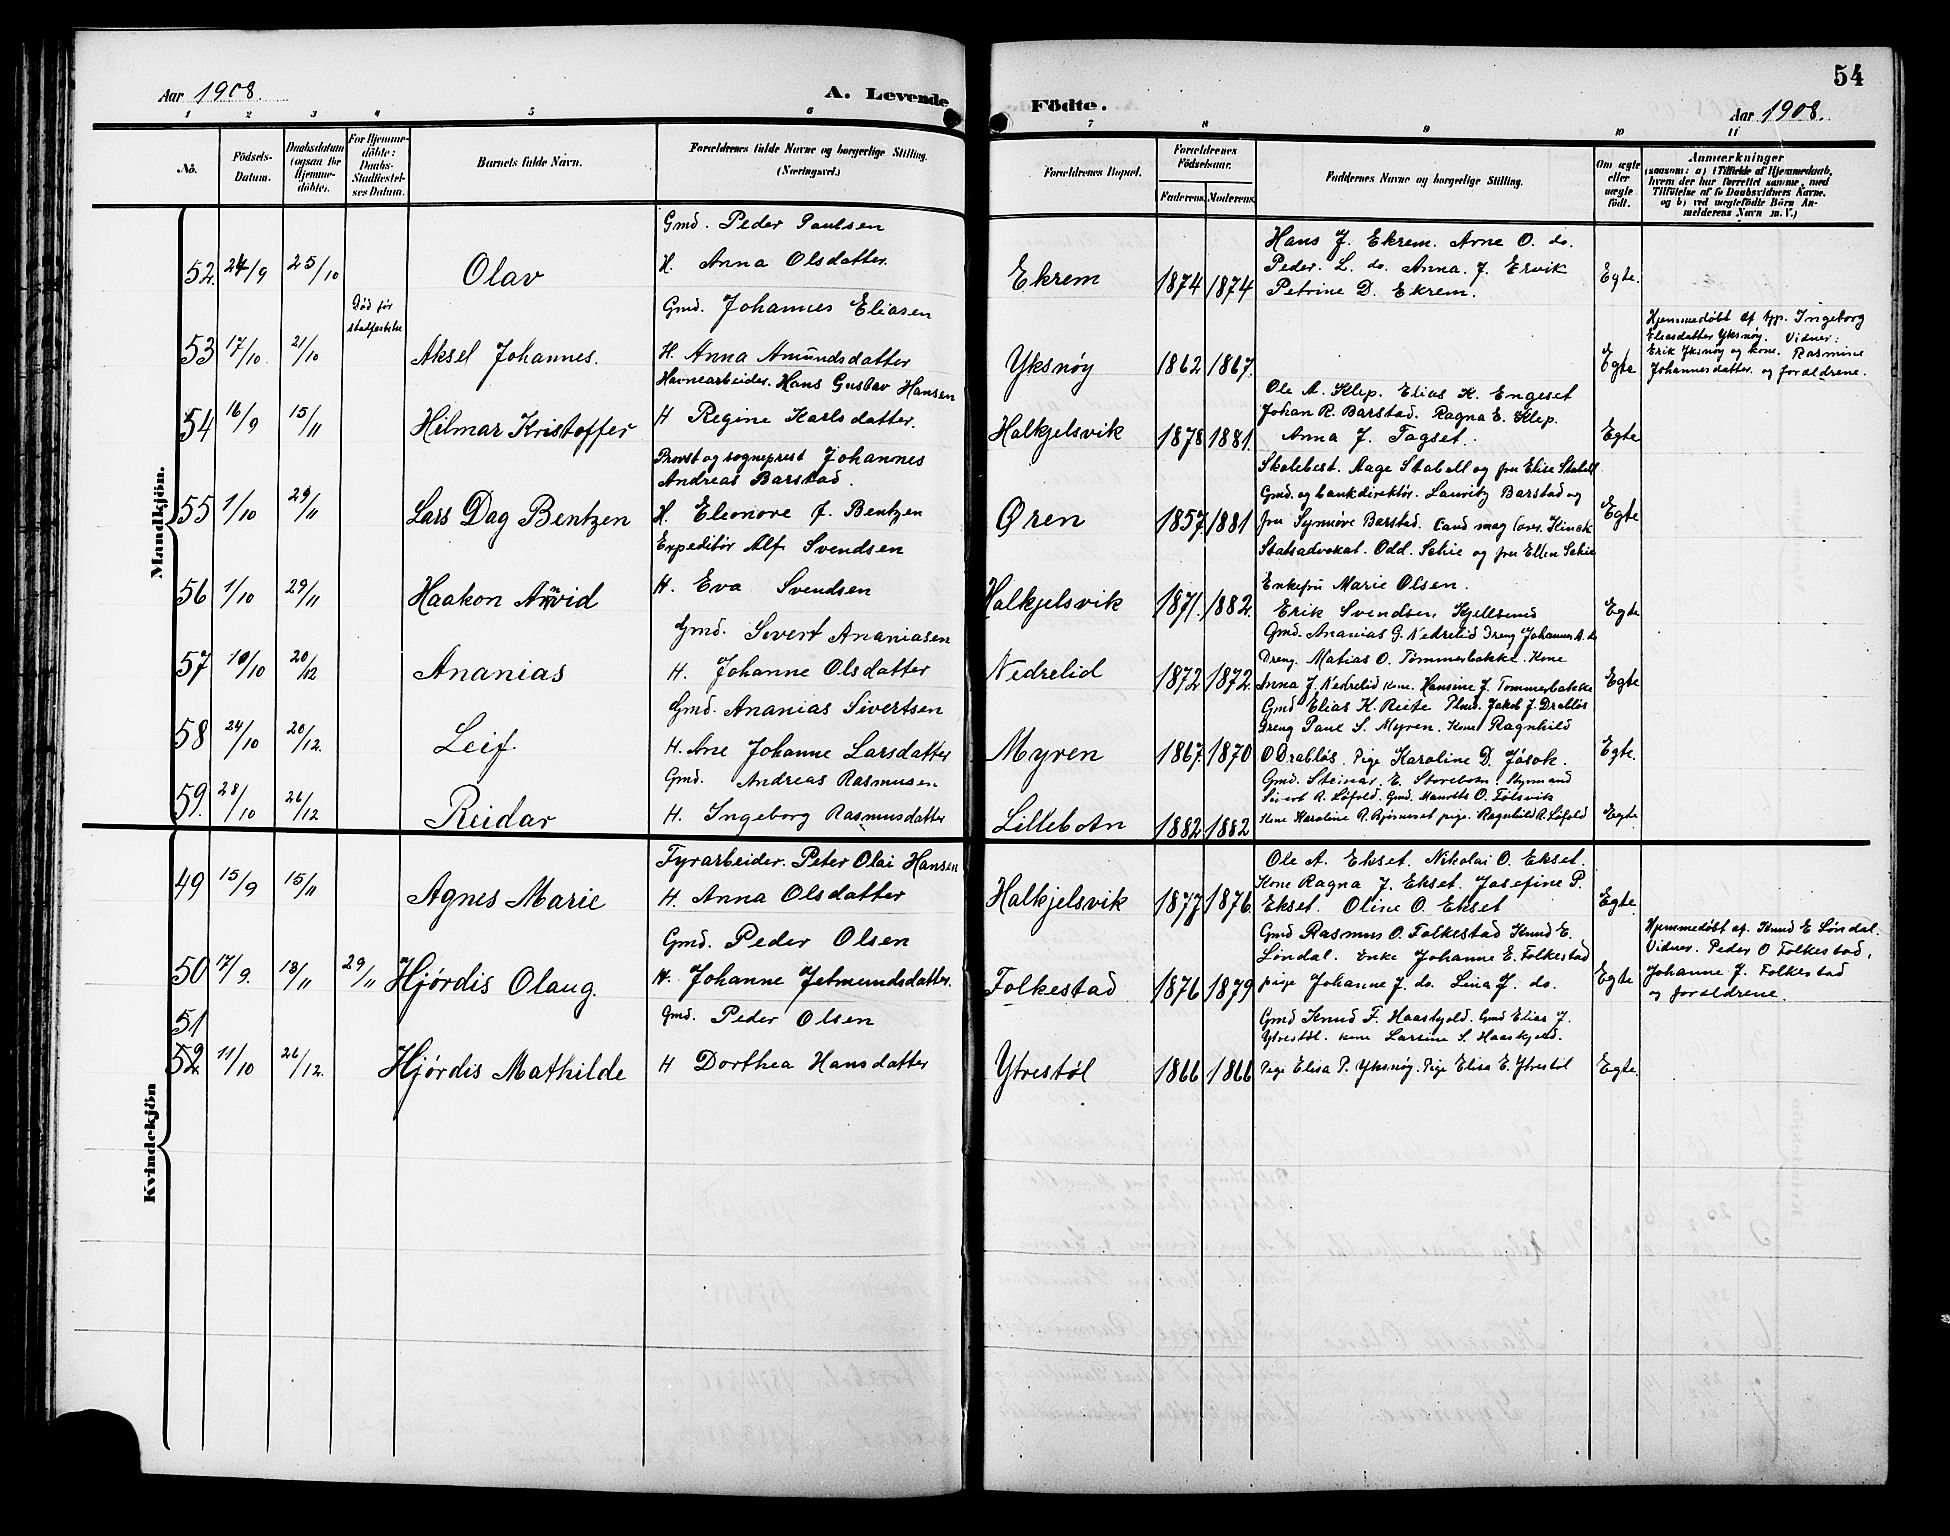 54
Aar 1908.
A. Levende Födte.
Aar 1908.
1 2 3 4 5 6 7 8 9 10 11
No.
Födsels-Datum.
Daabsdatum (ogsaa for Hjemmedöbte).
For Hjemmedöbte: Daabs-Stadfæstelses Datum.
Barnets fulde Navn.
Forældrenes fulde Navne og borgerlige Stilling. (Næringsvei.)
Forældrenes Bopæl.
Forældrenes Födselsaar.
Faderens. Moderens.
Faddernes Navne og borgerlige Stilling.
Om ægte eller uægte födt.
Anmærkninger
(saasom: a) i Tilfælde af Hjemmedaab, hvem der har forrettet samme, med Tilföielse af to Daabsvidners Navne, og b) ved uægtefödte Börn Anmelderens Navn m. V.)
Mandkjön.
Gmd. Peder Paulsen
52. 24/9 25/10 Olav H. Anna Olsdatter. Ekrem 1874 1874 Egte.
Hans J. Ekrem. Arne O. do.
Peder. L. do. Anna. J. Ervik
Petrine D. Ekrem.
Død før stadfestelse
Gmd. Johannes Eliasen
53 17/10. 21/10 Aksel Johannes. H. Anna Amundsdatter Yksnøy 1862 1867. Egte
Hjemmedøbt af Ingeborg
Eliasdatter Yksnøy. Vidner:
Erik Yksnøy og kone. Rasmine
Johannesdatter. og forældrene.
Havnearbeider. Hans Gustav Hansen
54 16/9 15/11 Hilmar Kristoffer H Regine Karlsdatter. Halkjelsvik 1878 1881. Egte
Ole A. Klep. Elias K. Engeset
Johan R. Barstad. Ragna E. Klep.
Anna J.
Provst og sogneprest Johannes
Andreas Barstad.
55 1/10 29/11 Lars Dag Bentzen H. Eleonore f. Bentzen Øren 1857. 1881 Egte
Skolebest. Aage Stabell og fru Elise Stabell
Gmd. og bankdirektør. Lauritz Barstad og
fru Synnøve Barstad. Cand mag Lars. Kinck
Statsadvokat. Odd. Schie og fru Ellen Schie
Expeditør Alf Svendsen
56 1/10 29/11 Haakon Arnvid H. Eva Svendsen Halkjelsvik 1871. 1882. Egte
Enkefru Marie Olsen.
Erik Svendsen,
Gmd. Sivert Ananiasen
57 10/10 20/12 Ananias H. Johanne Olsdatter Nedrelid 1872 1872. Egte
Gmd. Ananias G. Nedrelid Dreng Johannes A. do
Dreng. Matias O. Tømmerbakke. Kone
Anna J. Nedrelid kone. Hansine J. Tømmerbakke
Gmd. Ananias Sivertsen
58 24/10 20/12. Leif H. Ane Johanne Larsdatter Myren 1867. 1870 Egte.
Gmd Elias K. Reite Jakob J. Drabløs
Dreng Paul S. Myren. Kone Ragnhild
O Drabløs. Pige Karoline D. Jøsok.
Gmd. Andreas Rasmusen
59. 28/10 26/12 Reidar H. Ingeborg Rasmusdatter Lillebotn 1882 1882 Egte
Gmd. Steinar E. Storebotn. Styrmand
Sivert R. Løfold. Gmd. Maurits O. Folsvik
Kone Karoline R. pige. Ragnhild R. Løfold
Kvindekjön
Fyrarbeider. Peter Olai Hansen
49 15/9 15/11 Agnes Marie H. Anna Olsdatter Halkjelsvik 1877 1876 Egte.
Ole A. Ekset. Nikolai O. Ekset.
Kone Ragna J. Ekset. Josefine P.
Ekset. Oline O. Ekset
Gmd. Peder Olsen
50 17/9. 18/11 29/11 Hjørdis Olaug. H. Johanne Jetmundsdatter. Folkestad 1876 1879 Egte
Gmd Rasmus O. Folkestad Knud E.
Løndal. Enke Johanne E. Folkestad
pige Johanne J. do. Lina J. do.
Hjemmedøbt af. Knud E Løndal.
Vidner. Peder O Folkestad,
Johanne J. Folkestad
og forældrene.
51
Gmd. Peder Olsen
52 11/10 26/12. Hjørdis Mathilde H Dorthea Hansdatter Ytrestøl 1866 1866 Egte.
Gmd Knud F. Haaskjold. Gmd Elias J.
Ytrestøl. Kone Larsine S. Haaskjold.
Pige Elisa P. Yksnøy. Pige Elisa E. Ytrestøl